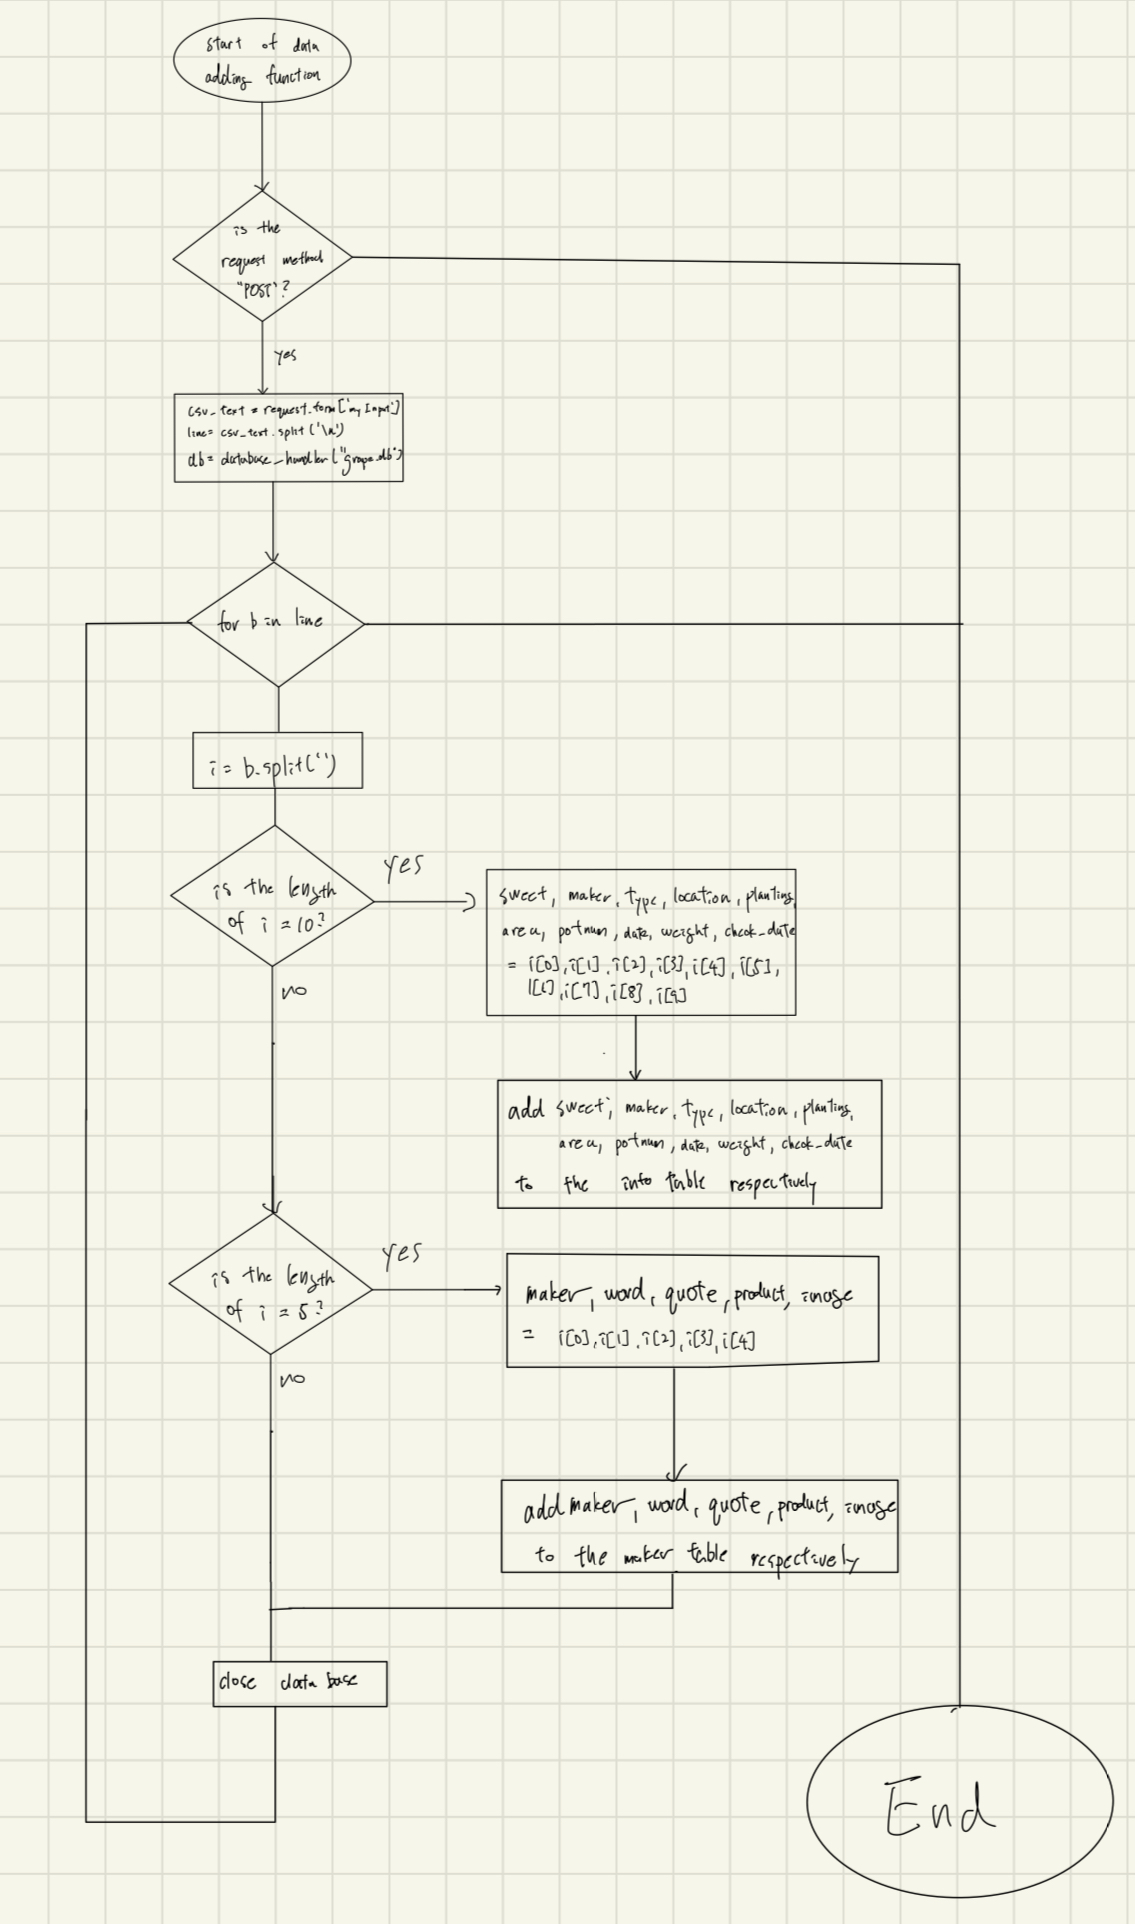 start of data
adding function
is the
request method
"POST"?
yes
csv_text = request.form['my Input']
line= csv_text.split('\n')
db= database_handler("grape.db")
for b in line
i= b.split('')
is the length
of i =10?
yes
sweet, maker, type, location, planting,
area, potnum, date, weight, check_date
= i[0], i[1], i[2], i[3], i[4], i[5],
i[6], i[7], i[8], i[9]
no
add sweet, maker, type, location, planting,
area, potnum, date, weight, check_date
to the info table respectively
is the length
of i = 5?
yes
maker, word, quote, product, image
= i[0], i[1], i[2], i[3], i[4]
no
add maker, word, quote, product, image
to the maker table respectively
close data base
End